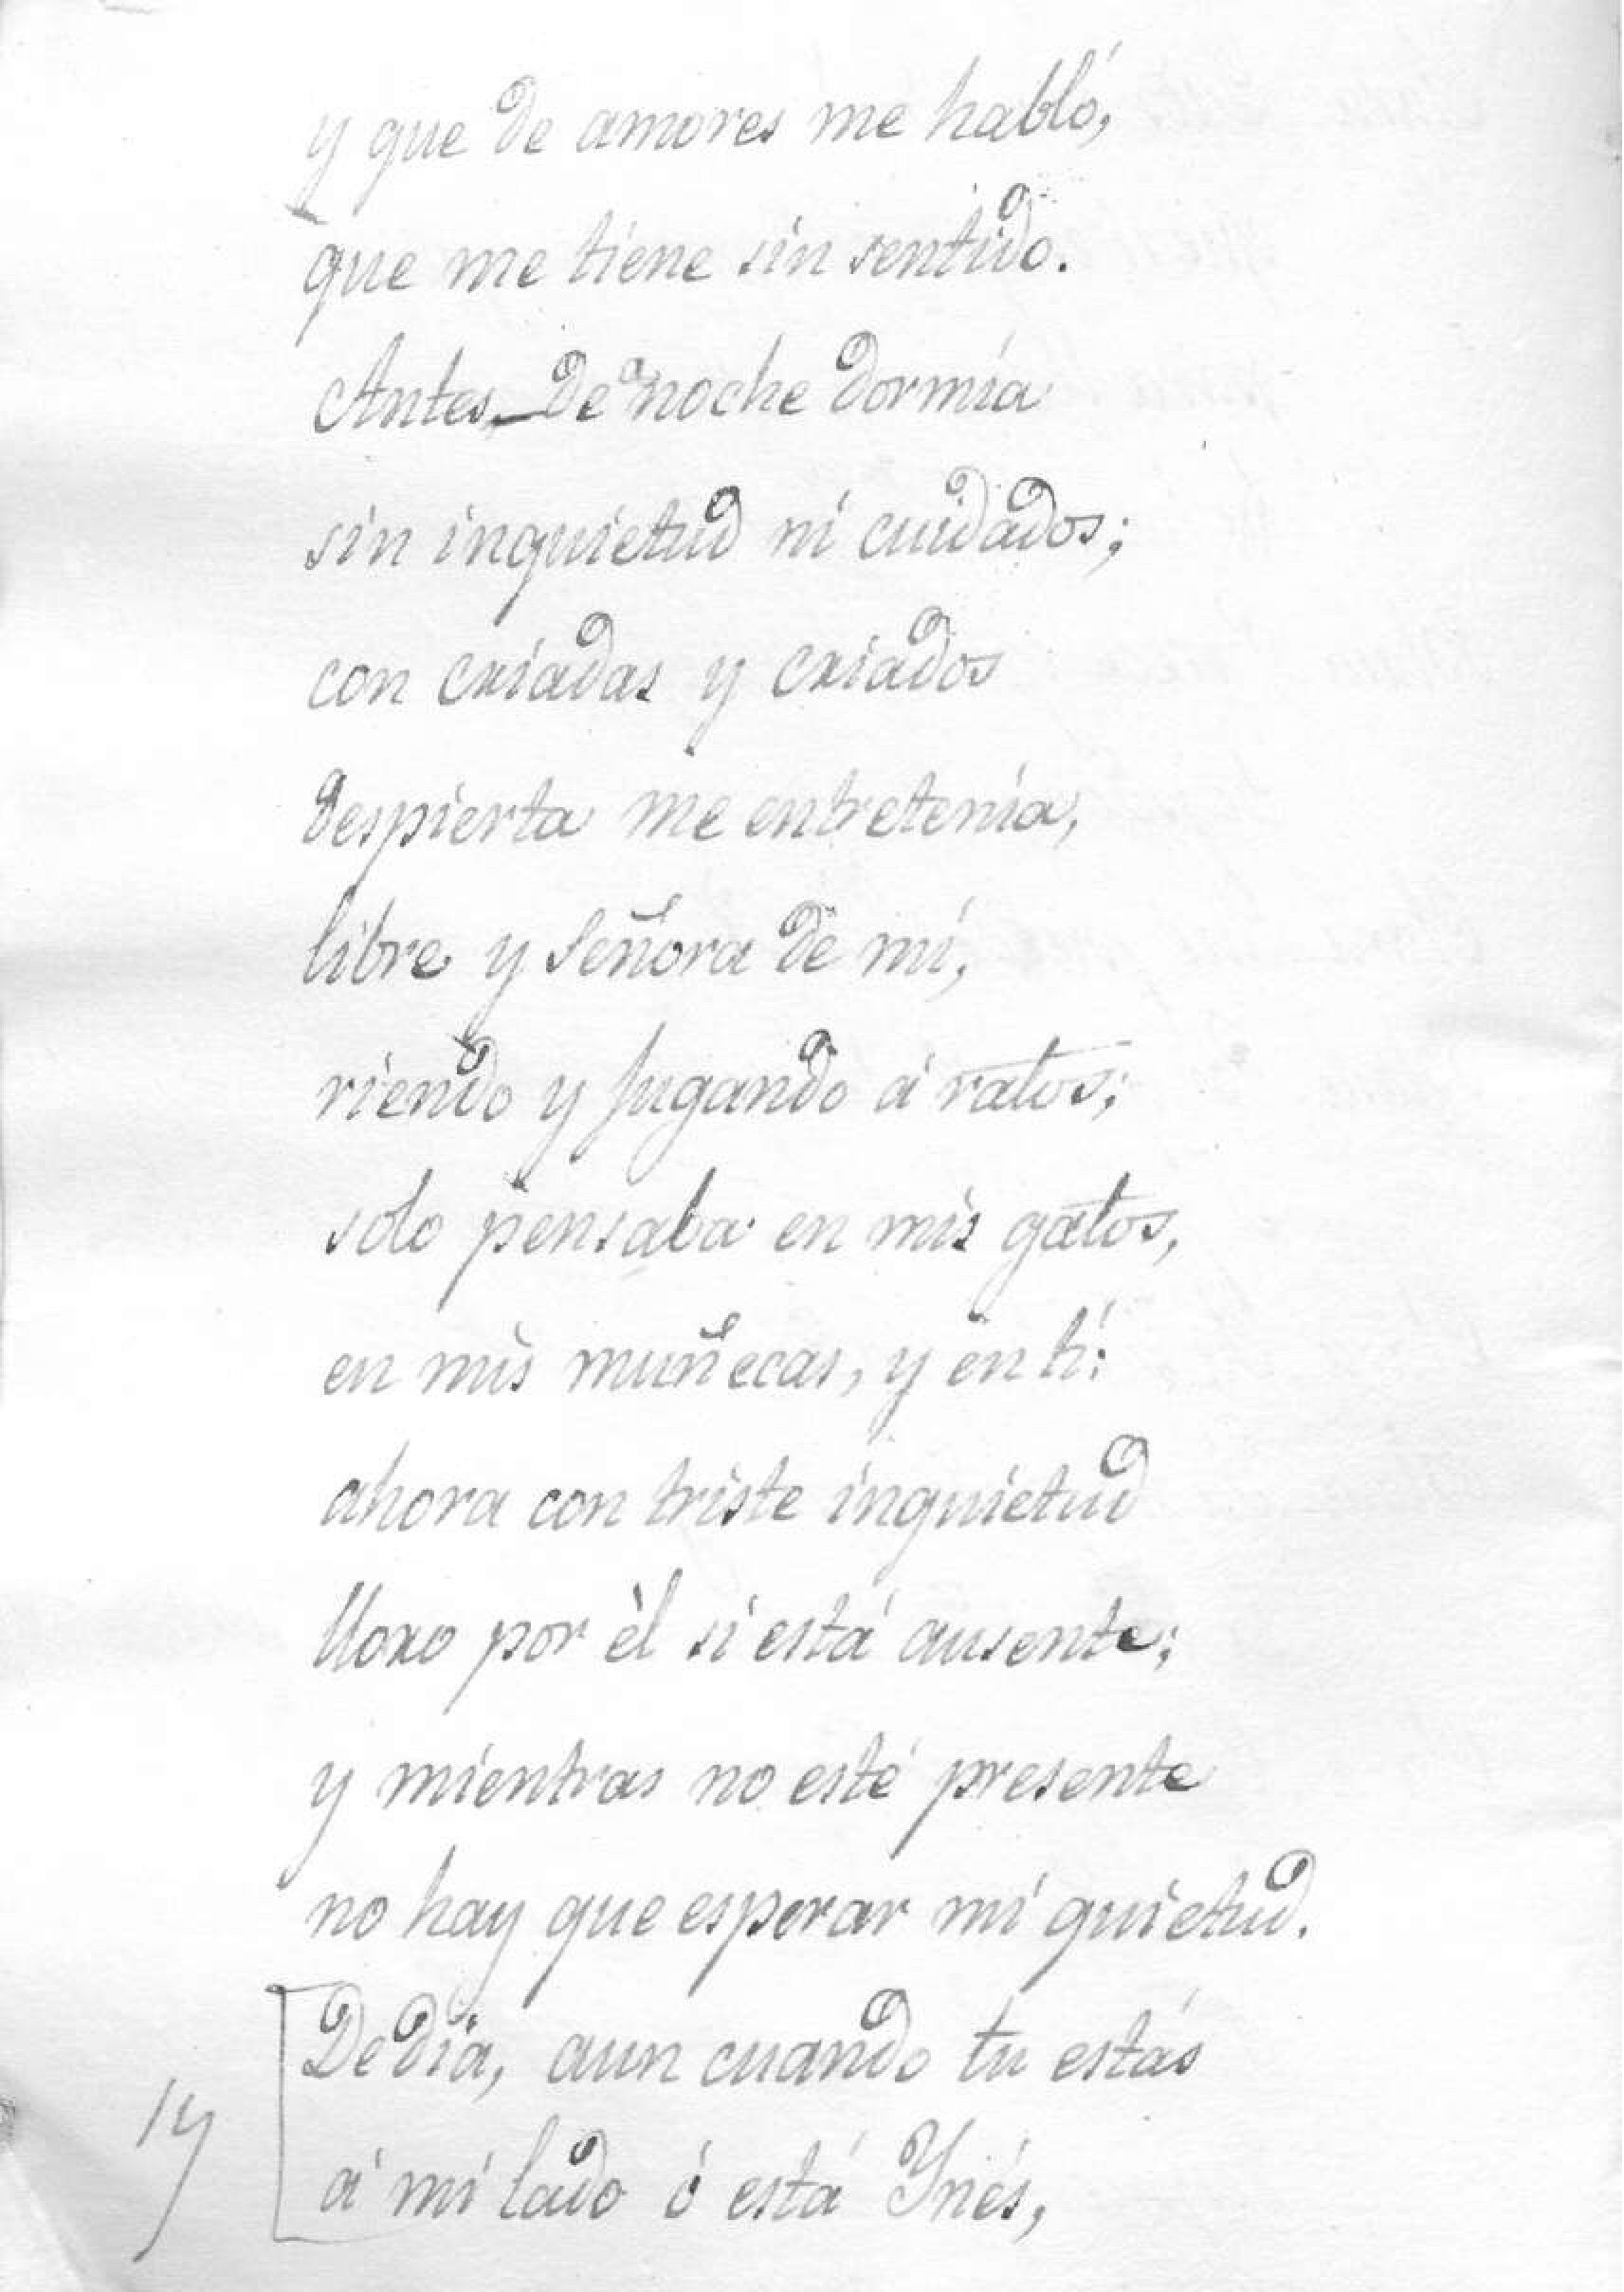 y que de amores me habló,
que me tiene sin sentido.
Antes de noche dormía
sin inquietud ni cuidados;
con criadas y criados
despierta me entretenía,
libre y Señora de mí,
riendo y jugando á ratos;
solo pensaba en mis gatos,
en mis muñecas, y en tí:
ahora con triste inquietud
lloro por èl si está ausente;
y mientras no esté presente
no hay que esperar mi quietud.
De dia, aun cuando tu estás
á mi lado ó está Ynés,